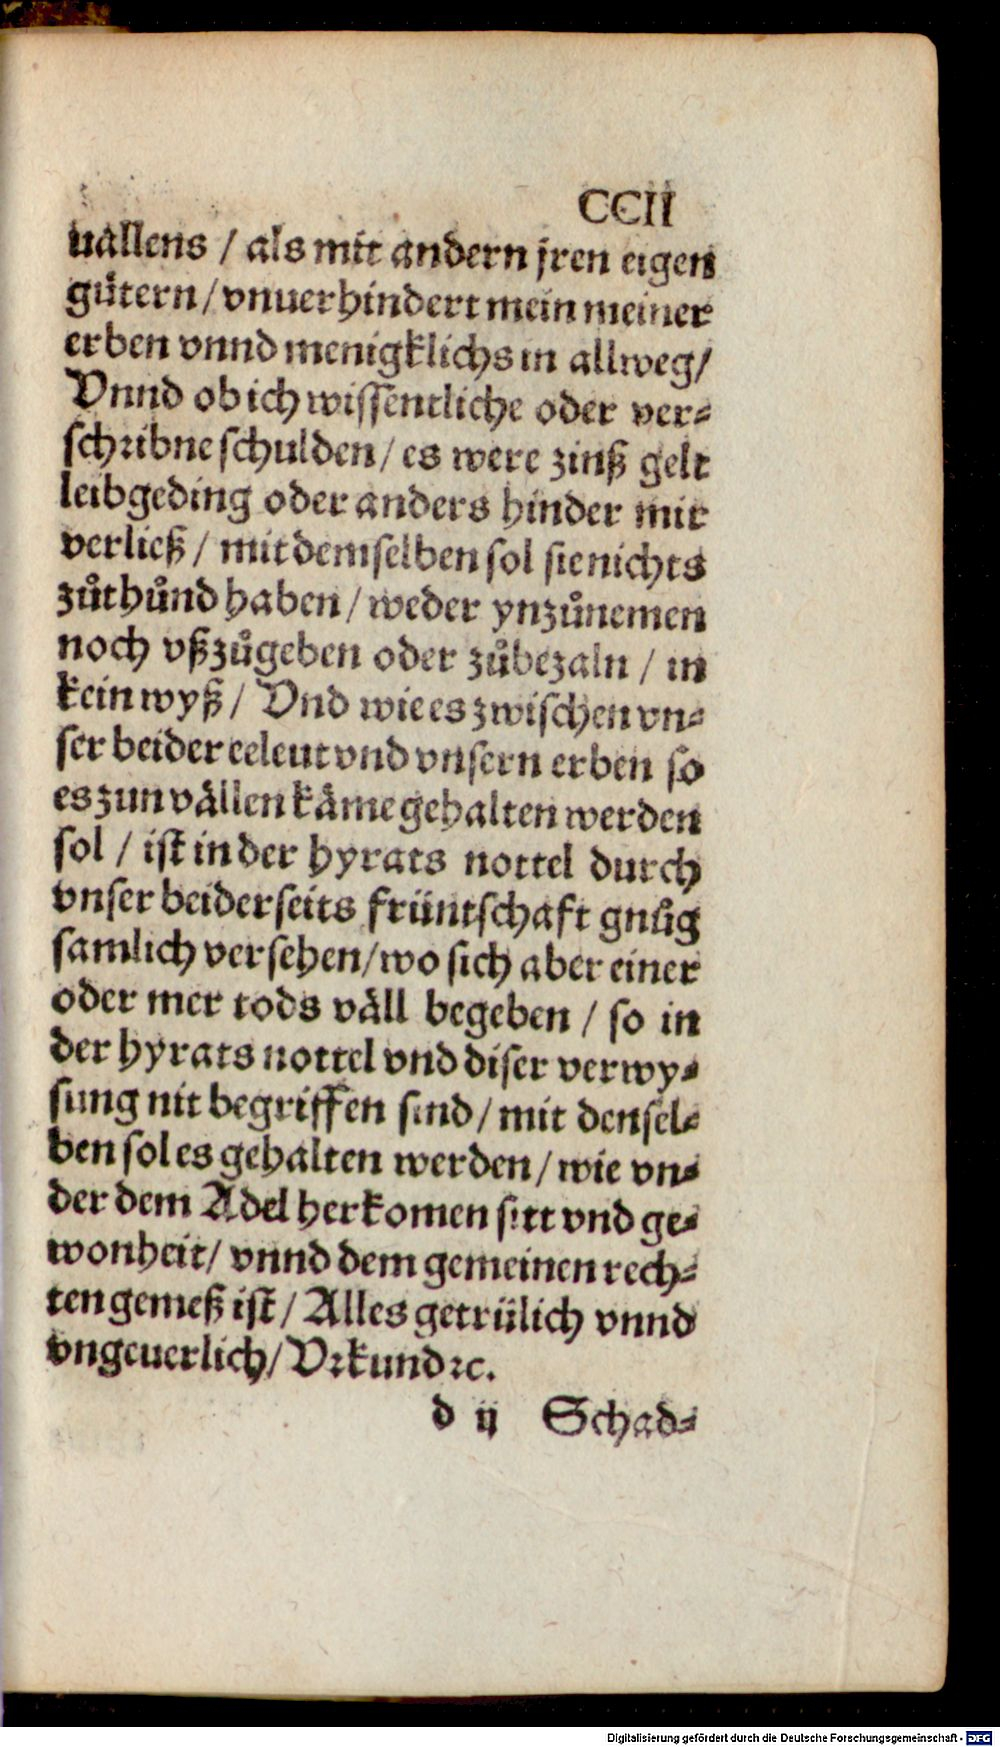 CCII
uållens / als mit andern jren eigen
gütern / vnuerhindert mein meiner
erben vnnd menigklichs in allweg /
Vnnd ob ich wissentliche oder ver⸗
schribne schulden / es were zinß gelt
leibgeding oder anders hinder mir
verließ / mit demselben sol sie nichts
zůthůnd haben / weder ynzůnemen
noch vßzůgeben oder zůbezaln / in
kein wyß / Vnd wie es zwischen vn⸗
ser beider eeleut vnd vnsern erben so
es zun vällen käme gehalten werden
sol / ist in der hyrats nottel durch
vnser beiderseits früntschaft gnůg
samlich versehen / wo sich aber einer
oder mer tods väll begeben / so in
der hyrats nottel vnd diser verwy⸗
sung nit begriffen sind / mit densel⸗
ben sol es gehalten werden / wie vn⸗
der dem Adel herkomen sitt vnd ge⸗
wonheit / vnnd dem gemeinen rech⸗
ten gemeß ist / Alles getrülich vnnd
vngeuerlich / Vrkund ⁊c.
d ij Schad⸗
Digitalisierung gefördert durch die Deutsche Forschungsgemeinschaft - DFG